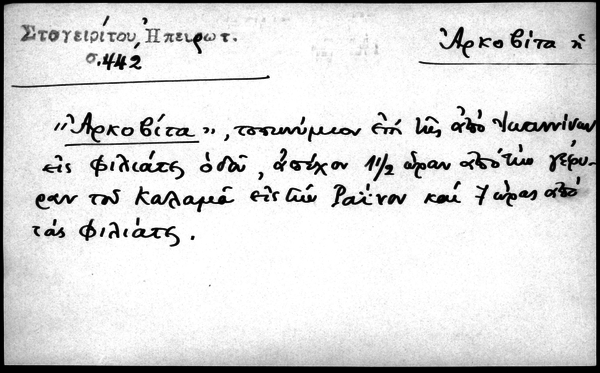 Στογειρίτου, Ἠπειρωτ.
σ.442
Ἀρκοβίτα ἡ
"Ἀρκοβίτα", τοπωνύμιον ἐπί τῆς ἀπό Ἰωαννίνων
εἰς Φιλιάτες ὁδοῦ, ἀπέχον 1 1/2 ὥραν ἀπό τήν γέφυ-
ραν τοῦ Καλαμᾶ εἰς τήν Ραΐνον καί 7 ὥρας ἀπό
τάς Φιλιάτες.